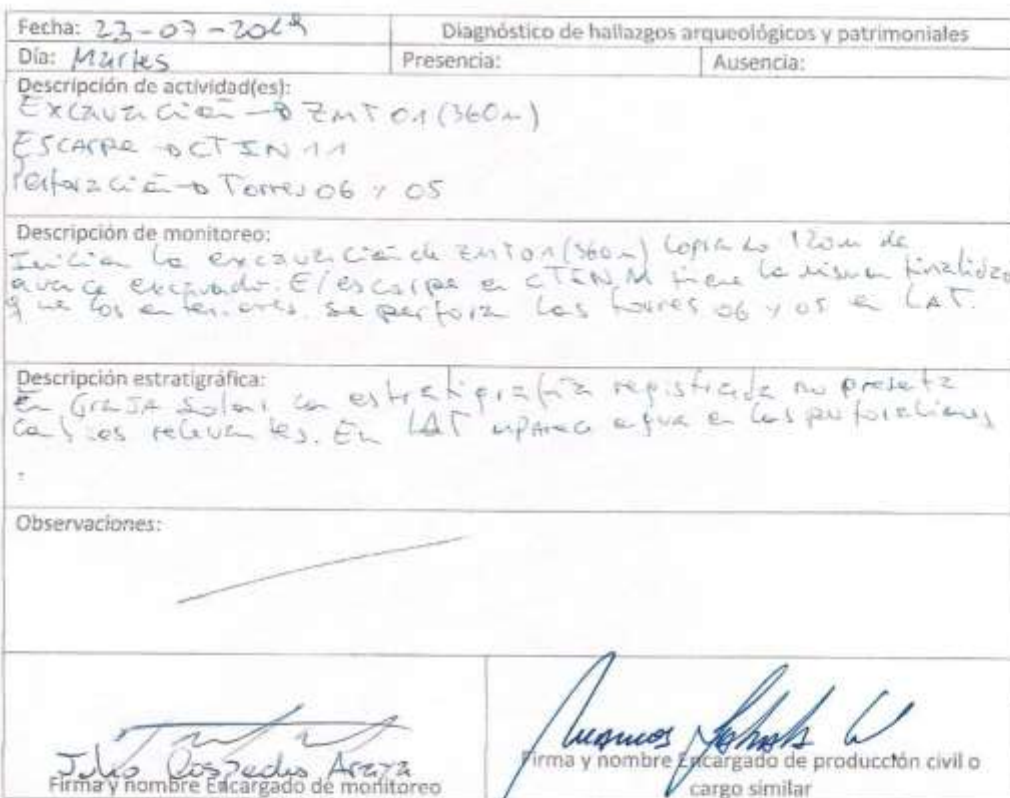 Fecha: 23-07-2019
Diagnóstico de hallazgos arqueológicos y patrimoniales
Día: Martes
Presencia:
Ausencia:
Descripción de actividad(es):
Excavación → ZMT 01 (360m)
Escarpe → CTIN 11
Perforación → Torres 06 y 05
Descripción de monitoreo:
Inician la excavación de ZMT01 (360m) logrando 120m de
avance excavado. El escarpe en CTIN 11 tiene la misma finalidad
que los anteriores. Se perfora las torres 06 y 05 en LAT.
Descripción estratigráfica:
En Granja Solar, la estratigrafía registrada no presenta
cambios relevantes. En LAT aparece agua en las perforaciones
.
Observaciones:
Julio Céspedes Araya
Firma y nombre Encargado de monitoreo
Firma y nombre Encargado de producción civil o
cargo similar